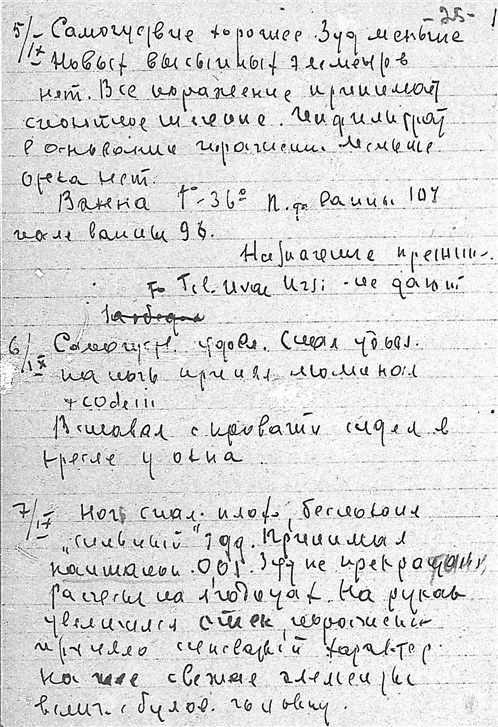 -25-
5/IX Самочувствие хорошее. Зуд меньше
Новых высыпных элементов
нет. Все поражение принимает
сплошное течение. Инфильтрат
в основании
нет.
Ванна t°-36° п. до ванны 104
после ванны 96.
Назначение прежн.
F. Uvae Ursi - не дают
6/IX Самочувств. удовл. Спал удовл.
на ночь принял люминал
+ codein
Вставал с кровати сидел в
кресле у окна.
7/IX Ночь спал плохо, беспокоил
"сильный" зуд. Принимал
0,01. Зуд не прекращали,
расчесы на ягодицах. На руках
увеличился отек, поражение
приняло характер.
На шее свежие элементы
велич. с булав. головку.